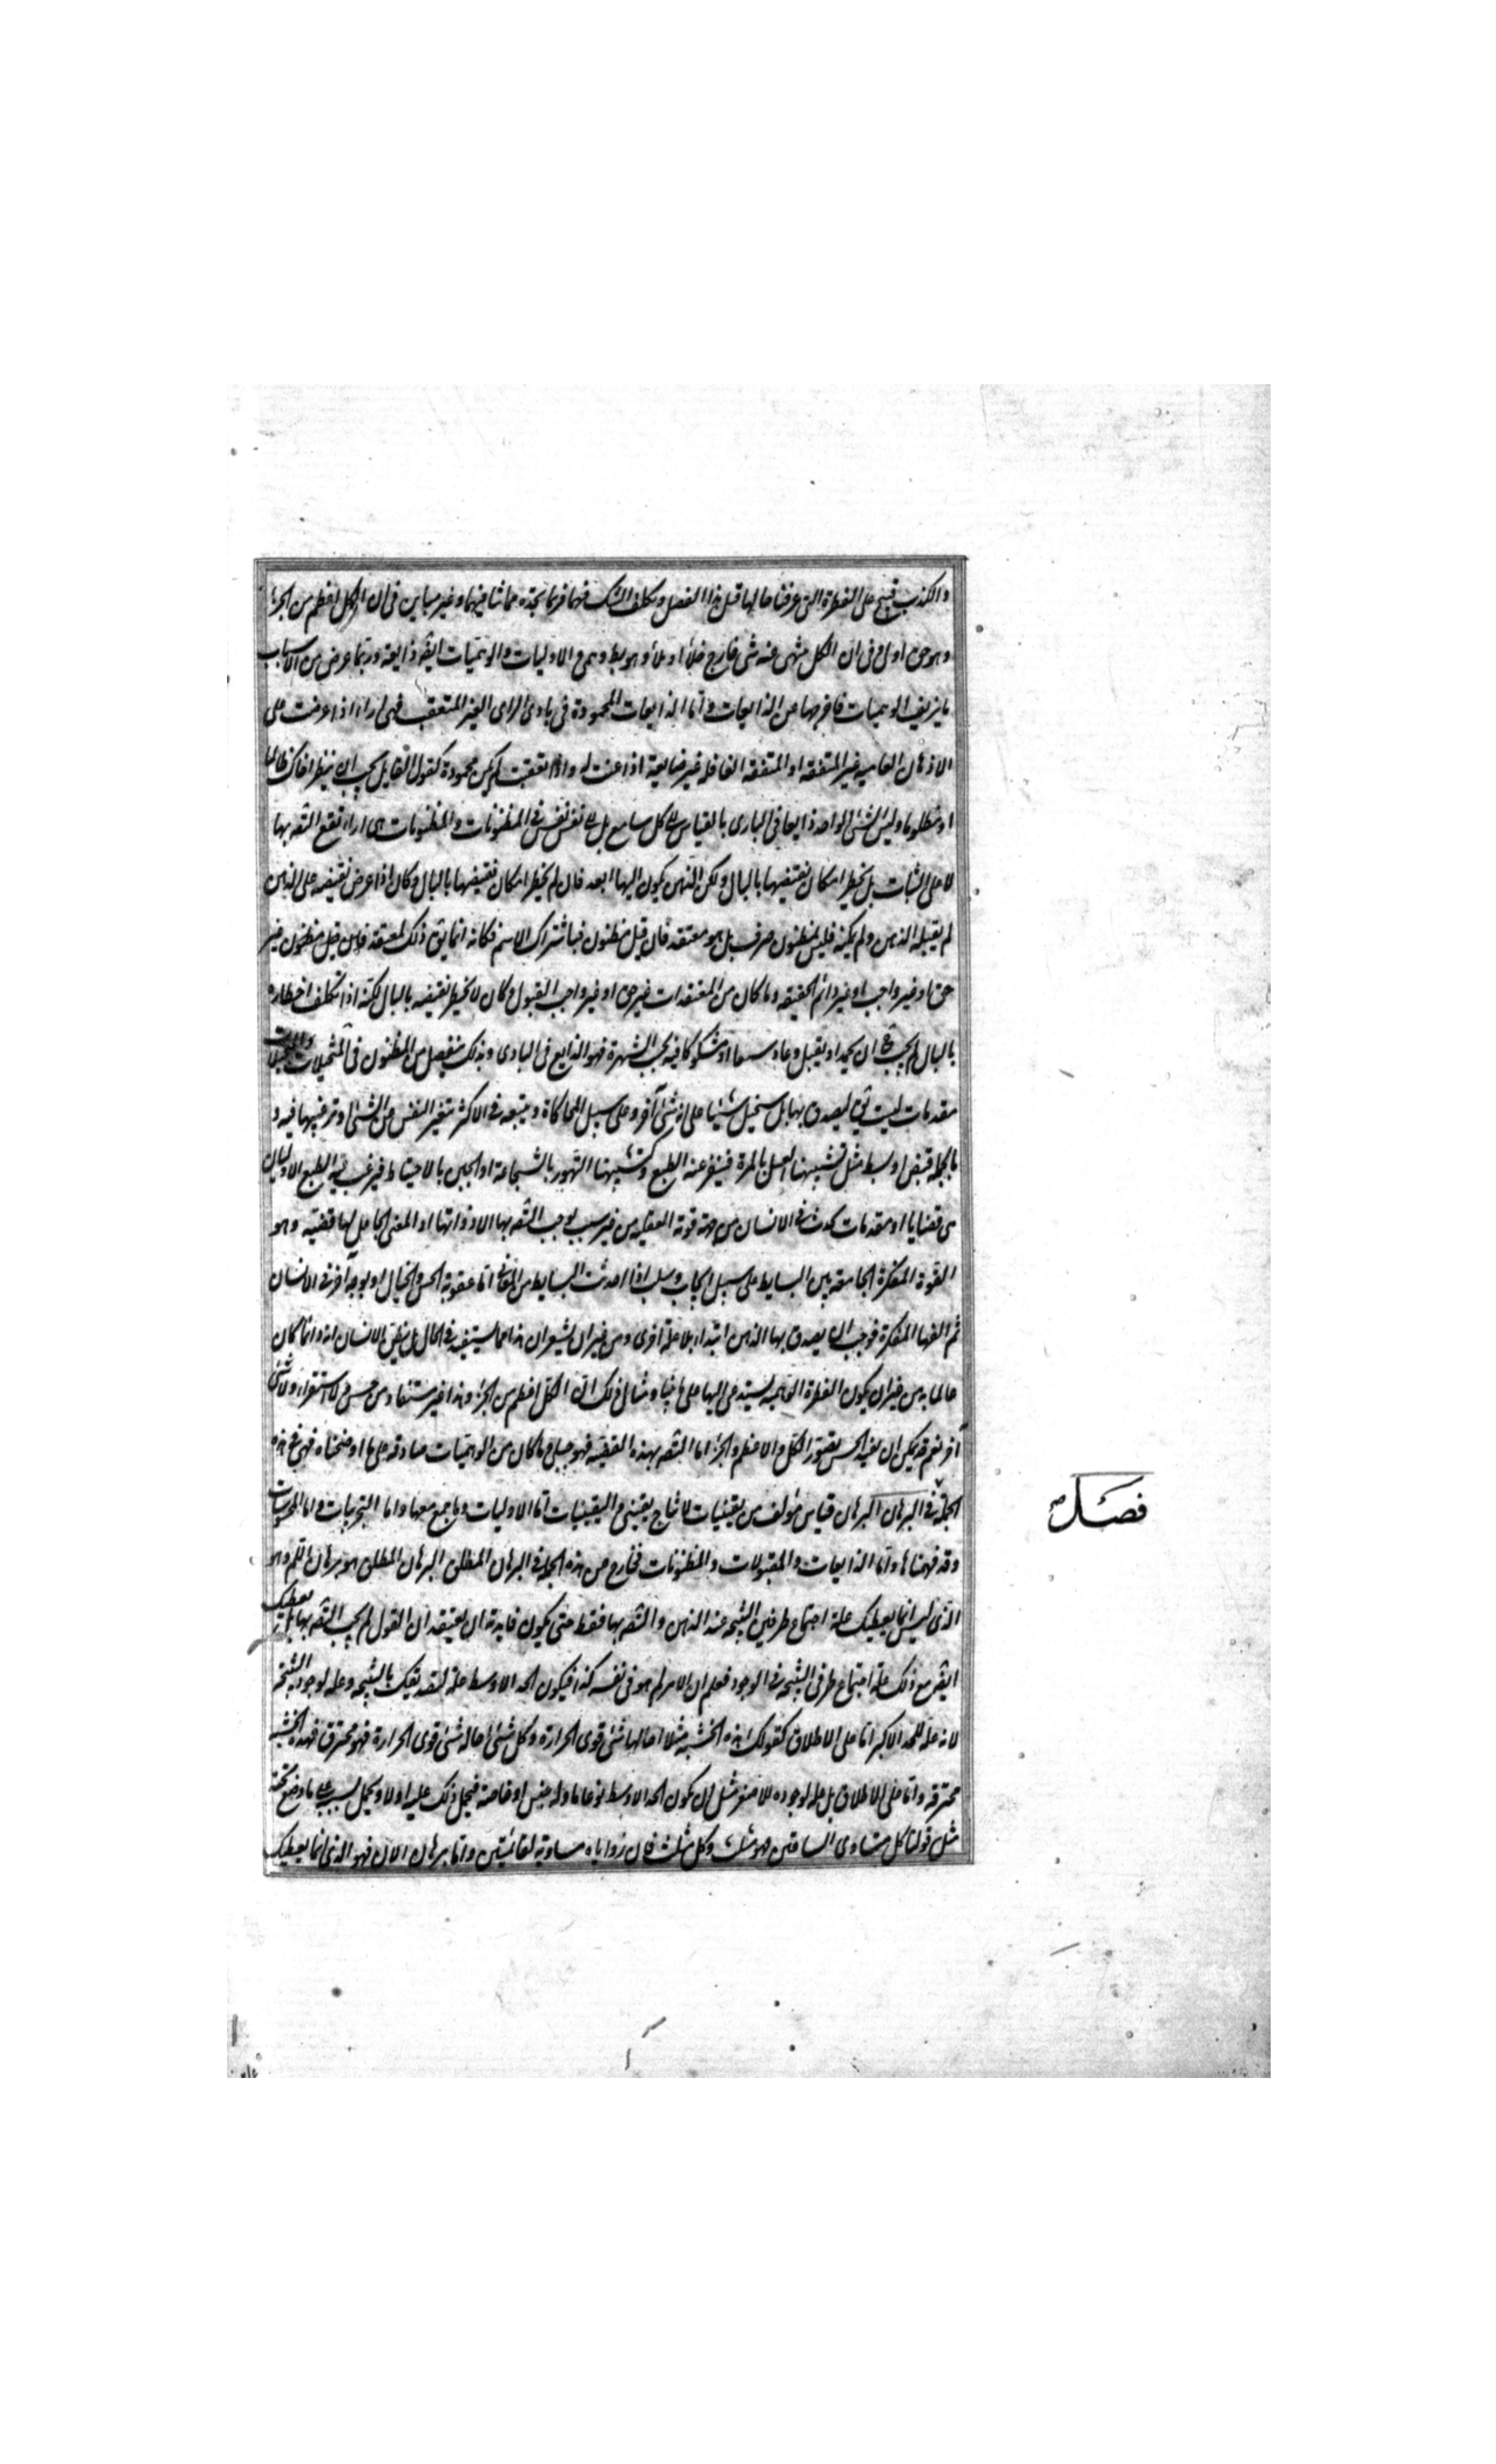 والكذب قبيح على الفطرة التى عرفنا حالها قبل هذا الفصل وتكلف الشك فيهما فربما تجده متأتيا فيهما وغير متأت فى ان الكل اعظم من الجزء
وهو حق اولى وفى ان الكل ينتهى عنه شئ خارج خلأ او ملأ وهو وهمى الاوليات والوهميات ايضا ذايعة وربما عرض من الاسباب
ما يزيف الوهميات فاخرجها من الذايعات واما الذايعات المحمودة فى بادى الراى الغير المتعقب فهى اراء اذا عرضت على
الاذهان العامية غير المتفقة او المتفقة الغافلة غير اذا عنت له واذا تعقبت لم يكن محمودة كقول القايل يجب ان ينظر اخاك ظالما
او مظلوما وليس الشئ الواحد ذايعا فى البادى بالقياس الى كل سامع بل الى نفس نفس فى المظنونات والمظنونات هى اراء تقع الثقة بها
لا على الثبات بل يخطر امكان نقيضها بالبال ولكن الذهن يكون اليها فان لم يخطر امكان نقيضها بالبال وكان اذا عرض نقيضه على الذهن
لم يقبله الذهن ولم يكنه فليس بمظنون صرف بل هو معتقد فان قيل مظنون فباشتراك الاسم فكانه انما يق ذلك لمعتقد فاين قيل مظنون غير
حق او غير واجب او غير دائم الحقيقه وما كان من المعتقدات غير حق او غير واجب القبول وكان لا يخطر نقيضه بالبال لكنه اذا تكلف اخطاره
بالبال لم يجب ان يحمد او يقبل وعاد او مشكوكا فيه بحسب الشهرة فهو الذايع فى البادى وبذلك ينفصل من المظنون فى المتخيلات والمخيلات
مقدمات ليست تق ليصدق بها بل ليخيل شيئا على انه شئ آخر وعلى سبيل المحاكاة ويتبعه فى الاكثر تنفير النفس عن الشئ او ترغيبها فيه و
بالجمله قبض او بسط مثل تشبيهنا العسل بالمرة فينفر عنه الطبع وكتشبيهنا التهور بالشجاعة او الجبن بالاحتياط فيرغب فيه الطبع الاوليات
هى قضايا او مقدمات تحدث فى الانسان من جهة قوته العقليه من غير سبب يوجب الثقه بها الا ذواتها او المعنى الجاعل لها قضيه وهو
القوة المفكرة الجامعة بين البسايط على سبيل ايجاب وسلب اذا احدثت البسايط من المعانى اما بمعونة الحس والخيال او بوجه آخر فى الانسان
ثم الفها المفكرة فوجب ان يصدق بها الذهن ابتداء بلا علة اخرى ومن غير ان يشعر ان هذا مما استفيد فى الحال بل يظن الانسان انه دائما كان
عالما به من غير ان يكون الفطرة الوهميه تستدعى اليها على ما بينا ومثال ذلك ان الكل اعظم من الجزء وهذا غير مستفاد من حس ولا استقراء ولا شئ
آخر نعم قد يمكن ان يفيد الحس تصور الكل والاعظم والجزء اما الثقه بهذه القضيه فهو جبلى وما كان من الوهميات صادقه على ما اوضحناه فهى فى هذه
الجملة فى البرهان البرهان قياس مؤلف من يقينيات لانتاج يقينى واليقينيات اما الاوليات وما جمع معها واما التجربيات واما المحسوسات
وقد فهمناها واما الذايعات والمقبولات والمظنونات فخارج من هذه الجمله فى البرهان المطلق البرهان المطلق هو برهان اللم وهو
الذى ليس انما يعطيك علة اجتماع طرفى النتيجه عند الذهن والثقه بها فقط حتى يكون فايدته ان يعتقد ان القول لم يجب الثقه بها بل يعطيك
ايضا مع ذلك علة اجتماع طرفى النتيجه فى الوجود فيعلم ان الامر لم هو فى نفسه كذا فيكون الحد الاوسط علة لتصديقك بالنتيجه وعله لوجود النتيجة
لانه علة للحد الاكبر اما على الاطلاق كقولك هذه الخشبة مثلا احالها شئ قوى الحرارة وكل شئ احاله شئ قوى الحرارة فهو محترق فهذه الخشبة
محترقه واما لا على الاطلاق بل علة لوجوده للاصغر مثل ان يكون الحد الاوسط نوعا ما وله جنس او خاصة فيحمل ذلك عليه اولا ويحمل بسببه على ما وضع تحته
مثل قولنا كل متساوى الساقين فهو مثلث وكل مثلث فان زواياه مساوية لقائمتين واما برهان الان فهو الذى انما يعطيك
فصل